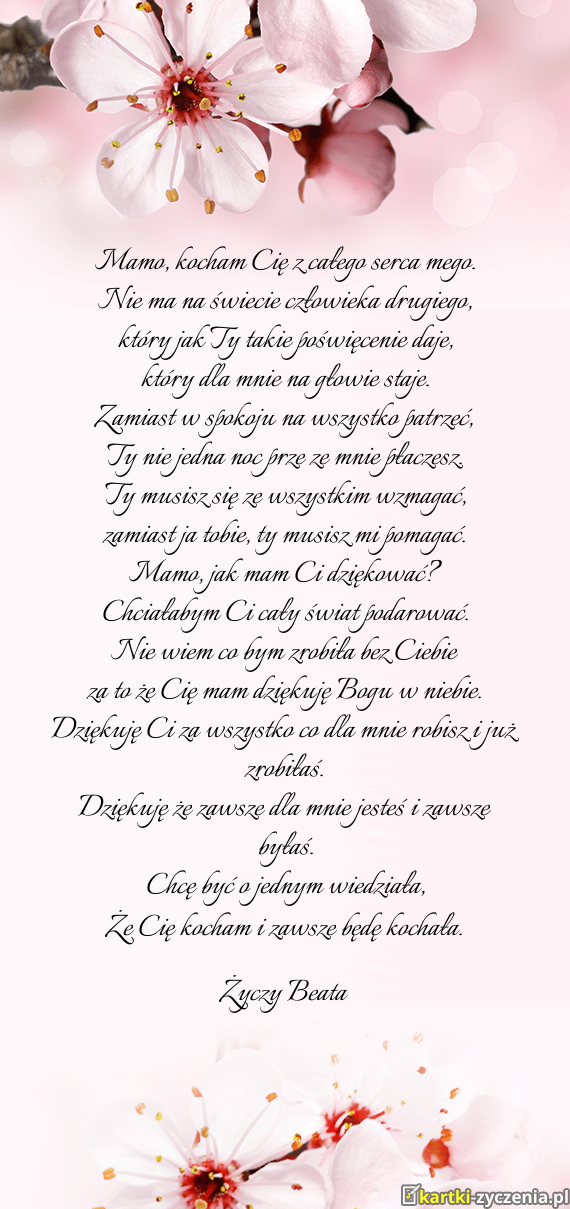 Mamo, kocham Cię z całego serca mego.
Nie ma na świecie człowieka drugiego,
który jak Ty takie poświęcenie daje,
który dla mnie na głowie staje.
Zamiast w spokoju na wszystko patrzeć,
Ty nie jedna noc prze ze mnie płaczesz.
Ty musisz się ze wszystkim wzmagać,
zamiast ja tobie, ty musisz mi pomagać.
Mamo, jak mam Ci dziękować?
Chciałabym Ci cały świat podarować.
Nie wiem co bym zrobiła bez Ciebie
za to że Cię mam dziękuję Bogu w niebie.
Dziękuję Ci za wszystko co dla mnie robisz i już
zrobiłaś.
Dziękuję że zawsze dla mnie jesteś i zawsze
byłaś.
Chcę być o jednym wiedziała,
Że Cię kocham i zawsze będę kochała.
Życzy Beata
kartki-zyczenia.pl